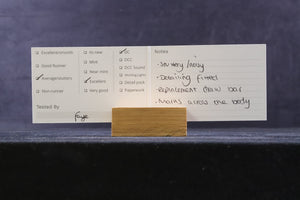 Excellent/smooth
Good Runner
Average/stutters
Non-runner
Tested By
Faye
As new
Mint
Near mint
Excellent
Very good
DC
DCC
DCC Sound
Working Lights
Detail pack
Paperwork
Notes
- Detailing fitted
- Replacement draw bar
- Marks across the body